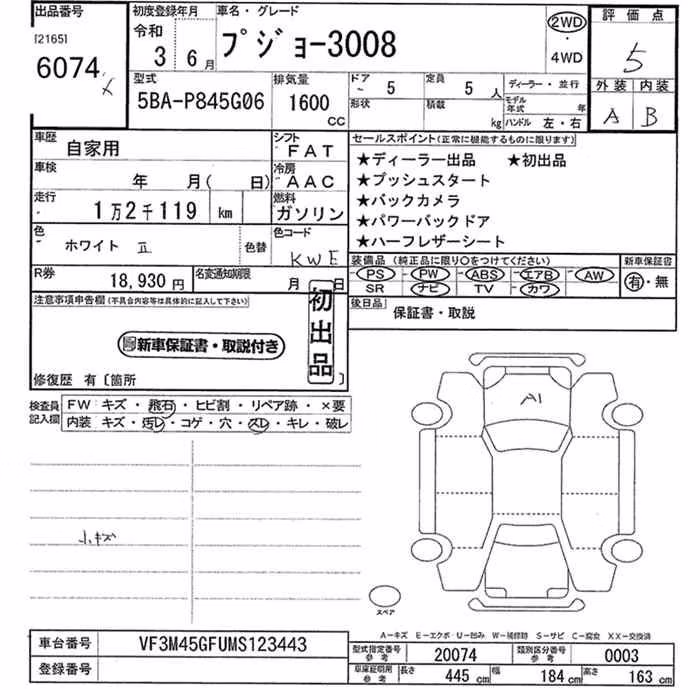 出品番号
[2165]
6074
初度登録年月
令和
3 6月
車名・グレード
プジョー3008
2WD
・
4WD
評価点
5
外装 内装
A B
型式
5BA-P845G06
排気量
1600
CC
ドア 5
定員 5人
形状
積載 kg
ディーラー・並行
モデル年式 年
ハンドル 左・右
車歴
自家用
シフト
FAT
車検
年 月( 日)
冷房
AAC
走行
1万2千119 km
燃料
ガソリン
色
ホワイト Ⅱ
色替
色コード
KWE
R券
18,930円
名変通知期限
月 日
セールスポイント(正常に機能するものに限ります)
★ディーラー出品 ★初出品
★プッシュスタート
★バックカメラ
★パワーバックドア
★ハーフレザーシート
装備品(純正品に限り○をつけてください)
PS PW ABS エアB AW
SR ナビ TV カワ
新車保証書
有・無
後日品
保証書・取説
注意事項申告欄(不具合内容等は具体的に記入して下さい)
新車保証書・取説付き
初出品
修復歴 有〔箇所 〕
検査員記入欄
FW キズ・飛石・ヒビ割・リペア跡・×要
内装 キズ・汚レ・コゲ・穴・スレ・キレ・破レ
小キズ
A1
スペア
A-キズ E-エクボ・U-凹み W-補修跡 S-サビ C-腐食 XX-交換済
車台番号
VF3M45GFUMS123443
登録番号
型式指定番号 参考
20074
類別区分番号 参考
0003
車庫証明用 参考
長さ 445cm 幅 184cm 高さ 163cm